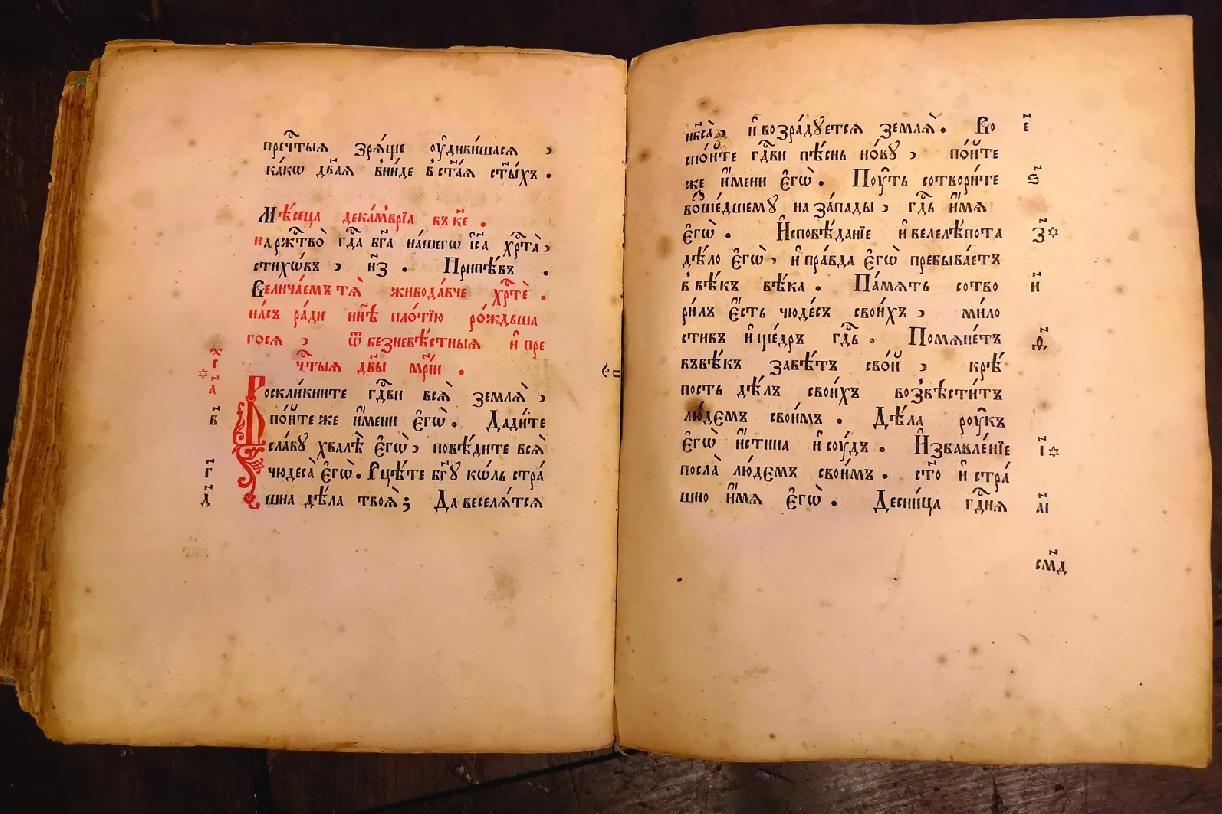 пречⷭ҇тыѧ зрѧ́ще ᲂу҆диви́шасѧ ,
ка́кѡ дв҃аѧ вни́де в̾ ст҃а́ѧ ст҃ы́хъ .
Мѣ́сеца дека́мвріа въ к҃е .
нарⷤтво̀ гдⷭ҇а бг҃а на́шегѡ і҆с҃а хрⷭ҇та̀ ,
стихо́въ , и҃з . Припѣ́въ .
Велича́емъ тѧ̀ живода́вче хрⷭ҇тѐ .
на́съ ра́ди нн҃ѣ пло́тїю ро́ждьша
госѧ , ѿ безневѣ́стныѧ и҆ пре
чⷭ҇тыѧ дв҃ы мр҃іи .
Воскли́кните гдⷭ҇ви всѧ̀ землѧ̀ ,
по́йте же и҆́мени є҆гѡ̀ . Дади́те
сла́ву хвалѣ̀ є҆гѡ̀ , повѣ́дите всѧ̀
чюдеса̀ є҆гѡ̀ . Рцѣ́те бг҃у ко́ль стра́
шна дѣ́ла твоѧ̀ ; Да веселѧ́тсѧ
а
в
г
д
нб҃са̀ , и҆ возра́дуетсѧ землѧ̀ . Во
спо́йте гдⷭ҇ви пѣ́снь но́ву , по́йте
же и҆́мени є҆гѡ̀ . Пᲂу́ть сотвори́те
воше́дшему на за́пады , гдⷭ҇ь и҆́мѧ
є҆гѡ̀ . И҆сповѣ́данїе и҆ велелѣ́пота
дѣ́ло є҆гѡ̀ , и҆ пра́вда є҆гѡ̀ пребыва́етъ
в̾ вѣ́къ вѣ́ка . Па́мѧть сотво
ри́лъ є҆́сть чюде́съ свои́хъ , ми́ло
стивъ и҆ ще́дръ гдⷭ҇ь . Помѧне́тъ
въ вѣ́къ завѣ́тъ сво́й , крѣ́
пость дѣ́лъ свои́хъ возвѣсти́тъ
лю́демъ свои́мъ . Дѣ́ла рᲂу́къ
є҆гѡ̀ и҆́стина и҆ сᲂу́дъ . И҆збавле́нїе
посла̀ лю́демъ свои́мъ . ст҃о и҆ стра́
шно и҆́мѧ є҆гѡ̀ . Десни́ца гдⷭ҇нѧ
є
ѕ
з
и
ѳ
і
аі
смд